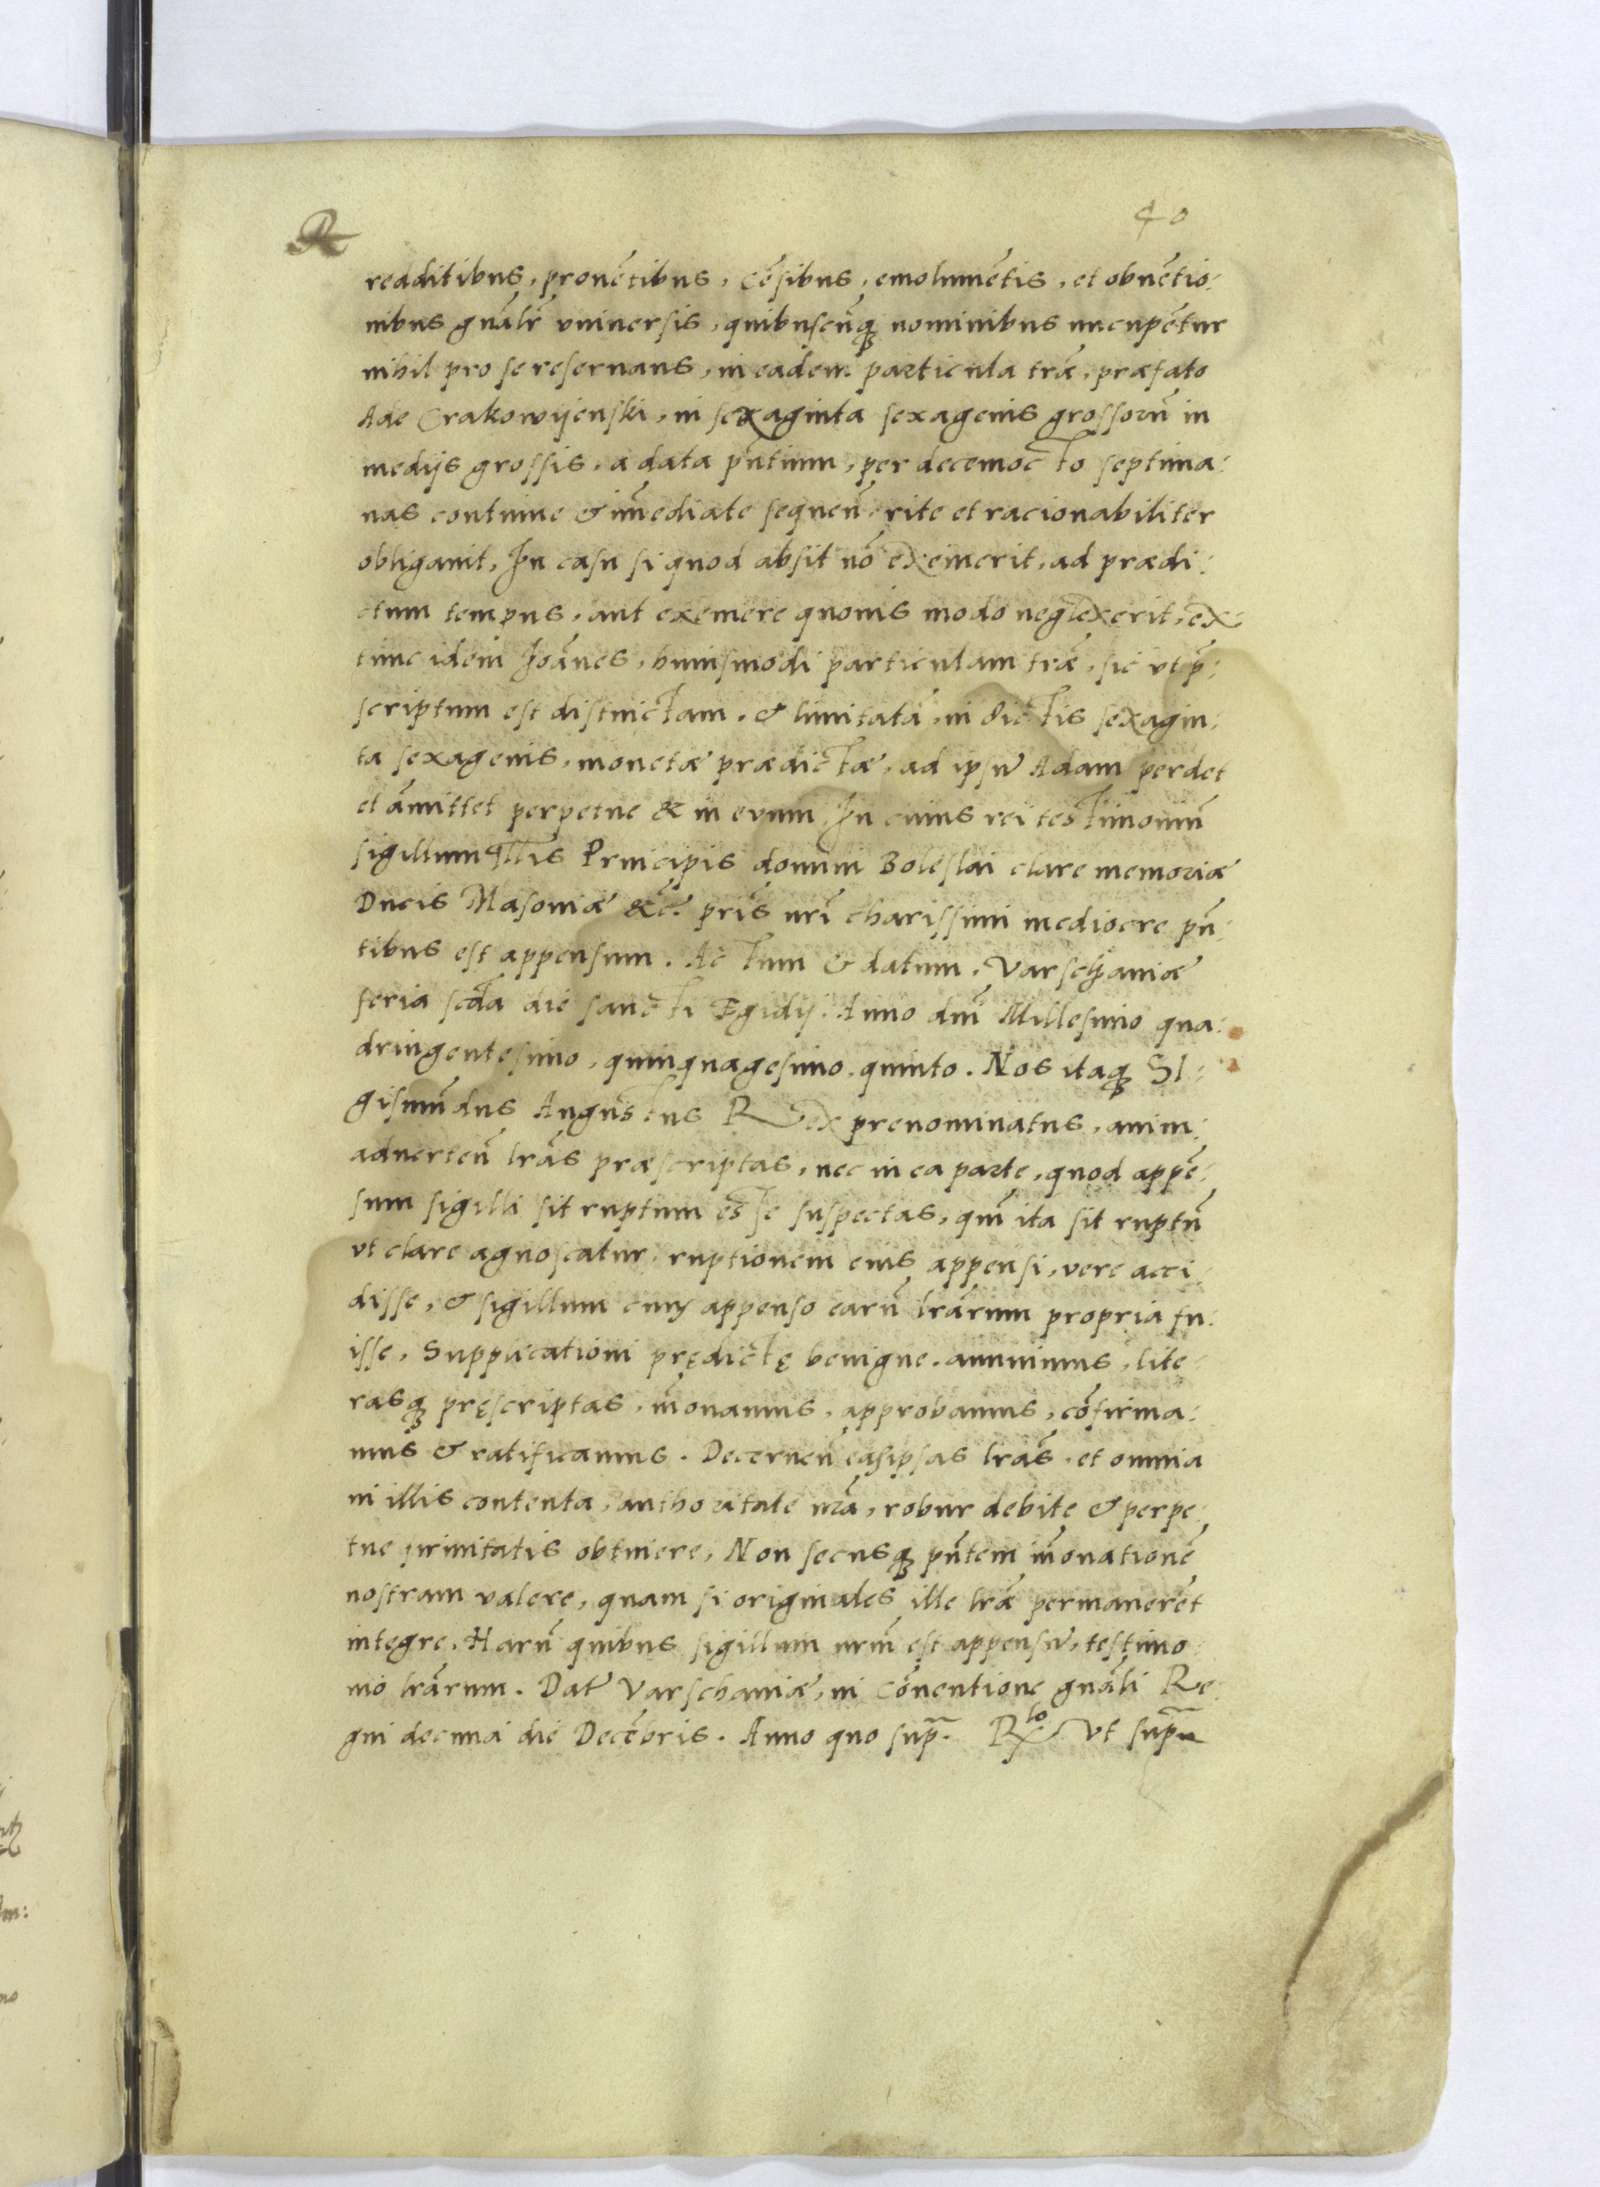 R
40
redditibus, prouētibus, cēsibus, emolumētis, et obuētio:
nibus gnāłr vniuersis, quibuscūq; nominibus nuncupētur
nihil pro se reseruans, in eadem particula trae, praefato
Ade Crakowijenski, in sexaginta sexagenis grossorū in
medijs grossis, a data pn̄tium, per decemocto septima:
nas continue & im̄ediate sequen̄, rite et racionabiliter
obligauit, In casu si quod absit nō exemerit, ad praedi:
ctum tempus, aut exemere quouis modo neglexerit, ex
tunc idem Joānes, huiusmodi particulam trae, sic vt p̄:
scriptum est distinctam, & limitatā, in dictis sexagin:
ta sexagenis, monetae praedictae, ad ipsū Adam perdet
et āmittet perpetue & in evum. In cuius rei testimoniū
sigillum Illis Principis domini Boleslai clare memoriae
Ducis Masoviae &c̄. prīs nrī charissimi mediocre pn̄:
tibus est appensum. Actum & datum, Varschaviae
feria scda die sancti Egidij. Anno dnī Millesimo qua:
dringentesimo, quinquagesimo, quinto. Nos itaq; SI:
gismūdus Augustus Rex prenominatus, anim:
aduerten̄ lrās praescriptas, nec in ea parte, quod appē:
sum sigilli sit ruptum esse suspectas, qūm ita sit ruptū
vt clare agnoscatur, ruptionem eius appensi, vere acci:
disse, & sigillum cum appenso earū lrārum propria fu:
isse, Supplicationi prędictę benigne annuimus, lite:
rasq; pręscriptas, in̄ouamus, approbamus, cōfirma:
mus & ratificamus. Decernen̄ easipsas lrās, et omnia
in illis contenta, authoritate nrā, robur debite & perpe:
tue firmitatis obtinere, Non secusq; pn̄tem in̄ouationē
nostram valere, quam si originales ille lrae permanerēt
integre. Harū quibus sigillum nrūm est appensū, testimo:
nio lrārum. Dat̄ Varschaviae, in cōuentione gnāli Re:
gni decima die Decēbris. Anno quo sup̄. Rlo vt supra